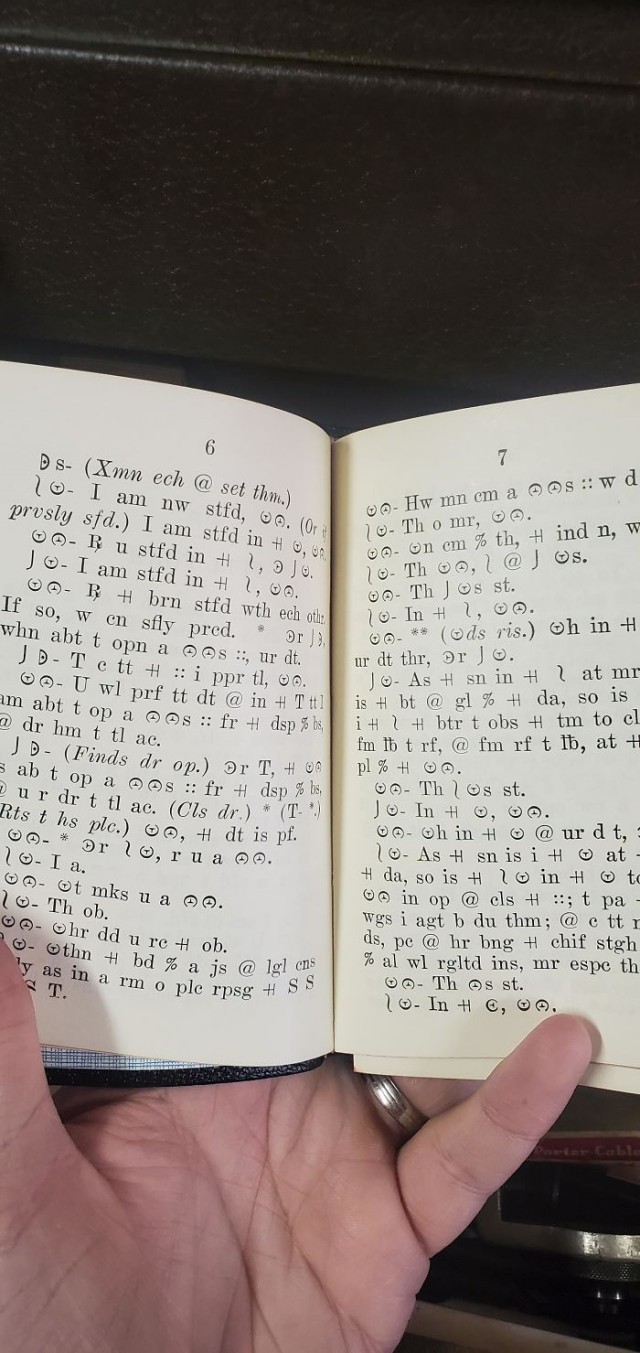 6
𝔇 s- (Xmn ech @ set thm.)
⌉ ☉- I am nw stfd, ☉☉. (Or
prvsly sfd.) I am stfd in ⵀ ☉, ☉☉.
☉☉- ℞ u stfd in ⵀ ⌉, Ɔ ⌡☉.
⌡ ☉- I am stfd in ⵀ ⌉, ☉☉.
☉☉- ℞ ⵀ brn stfd wth ech othr.
If so, w cn sfly prcd. * Ɔr ⌡
whn abt t opn a ☉☉s ::, ur dt.
⌡ 𝔇- T c tt ⵀ :: i ppr tl, ☉☉.
☉☉- U wl prf tt dt @ in ⵀ T tt
am abt t op a ☉☉s :: fr ⵀ dsp % bs,
@ dr hm t tl ac.
⌡ 𝔇- (Finds dr op.) Ɔr T, ⵀ ☉☉
ab t op a ☉☉s :: fr ⵀ dsp % bs,
u r dr t tl ac. (Cls dr.) * (T- *.)
Rts t hs plc.) ☉☉, ⵀ dt is pf.
☉☉- * Ɔr ⌉ ☉, r u a ☉☉.
⌉ ☉- I a.
☉☉- ☉t mks u a ☉☉.
⌉ ☉- Th ob.
☉☉- ☉hr dd u rc ⵀ ob.
☉- ☉thn ⵀ bd % a js @ lgl cns
as in a rm o plc rpsg ⵀ S S
S T.
7
☉☉- Hw mn cm a ☉☉s :: w d
⌉☉- Th o mr, ☉☉.
☉☉- ☉n cm % th, ⵀ ind n, w
⌉☉- Th ☉☉, ⌉ @ ⌡ ☉s.
☉☉- Th ⌡ ☉s st.
⌉☉- In ⵀ ⌉, ☉☉.
☉☉- ** (☉ds ris.) ☉h in ⵀ
ur dt thr, Ɔr ⌡ ☉.
⌡☉- As ⵀ sn in ⵀ ⌉ at mr
is ⵀ bt @ gl % ⵀ da, so is
i ⵀ ⌉ ⵀ btr t obs ⵀ tm to cl
fm lb t rf, @ fm rf t lb, at ⵀ
pl % ⵀ ☉☉.
☉☉- Th ⌉ ☉s st.
⌡☉- In ⵀ ☉, ☉☉.
☉☉- ☉h in ⵀ ☉ @ ur d t,
⌉☉- As ⵀ sn is i ⵀ ☉ at
ⵀ da, so is ⵀ ⌉ ☉ in ⵀ ☉ to
☉☉ in op @ cls ⵀ ::; t pa
wgs i agt b du thm; @ c tt
ds, pc @ hr bng ⵀ chif stgh
% al wl rgltd ins, mr espc th
☉☉- Th ☉s st.
⌉☉- In ⵀ Є, ☉☉.
Porter-Cable